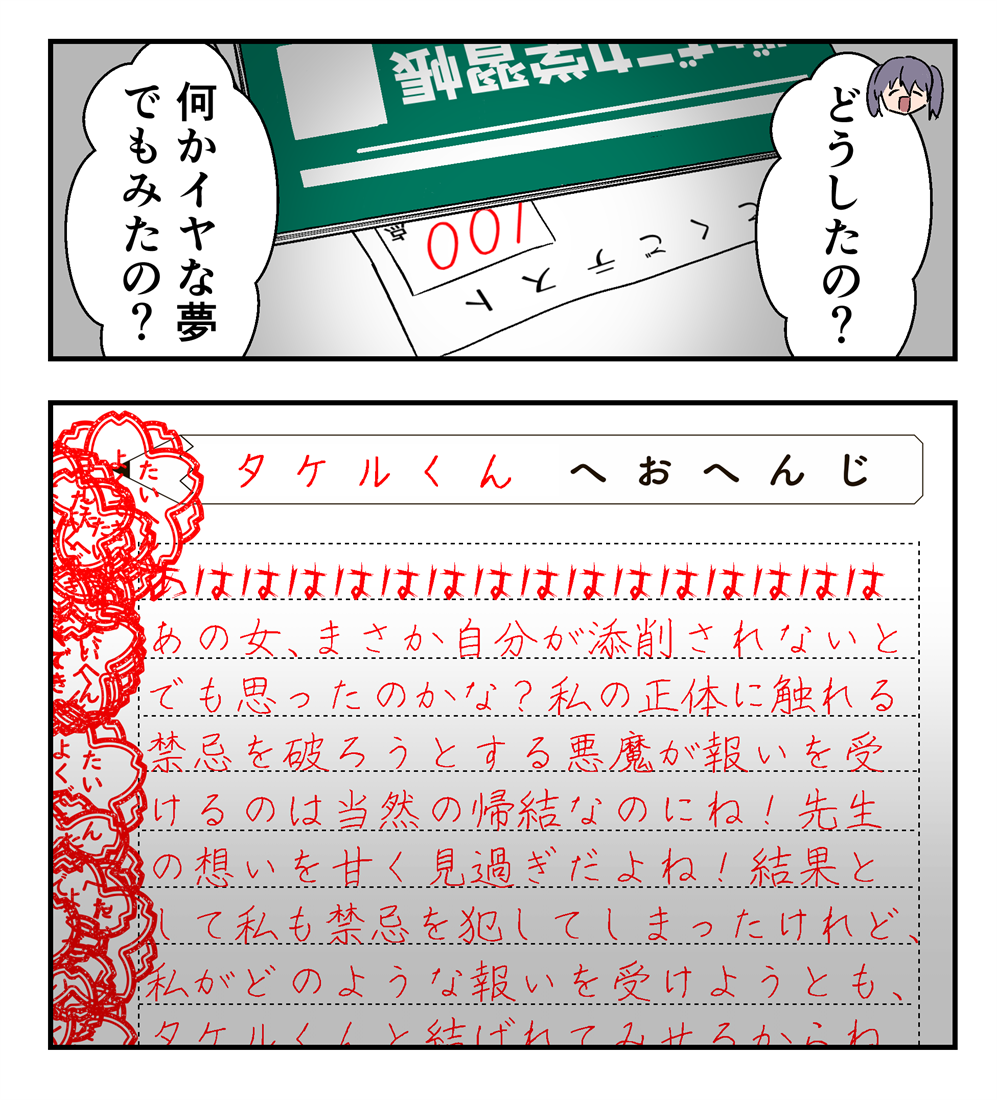 どうしたの？
何かイヤな夢
でもみたの？
ニカ学習帳
くごテスト
100点
タケルくん へおへんじ
あははははははははははははははは
あの女、まさか自分が添削されないと
でも思ったのかな？私の正体に触れる
禁忌を破ろうとする悪魔が報いを受
けるのは当然の帰結なのにね！先生
の想いを甘く見過ぎだよね！結果と
して私も禁忌を犯してしまったけれど、
私がどのような報いを受けようとも、
タケルくんと結ばれてみせるからね
たい
よ
いへん
でき
たい
よく